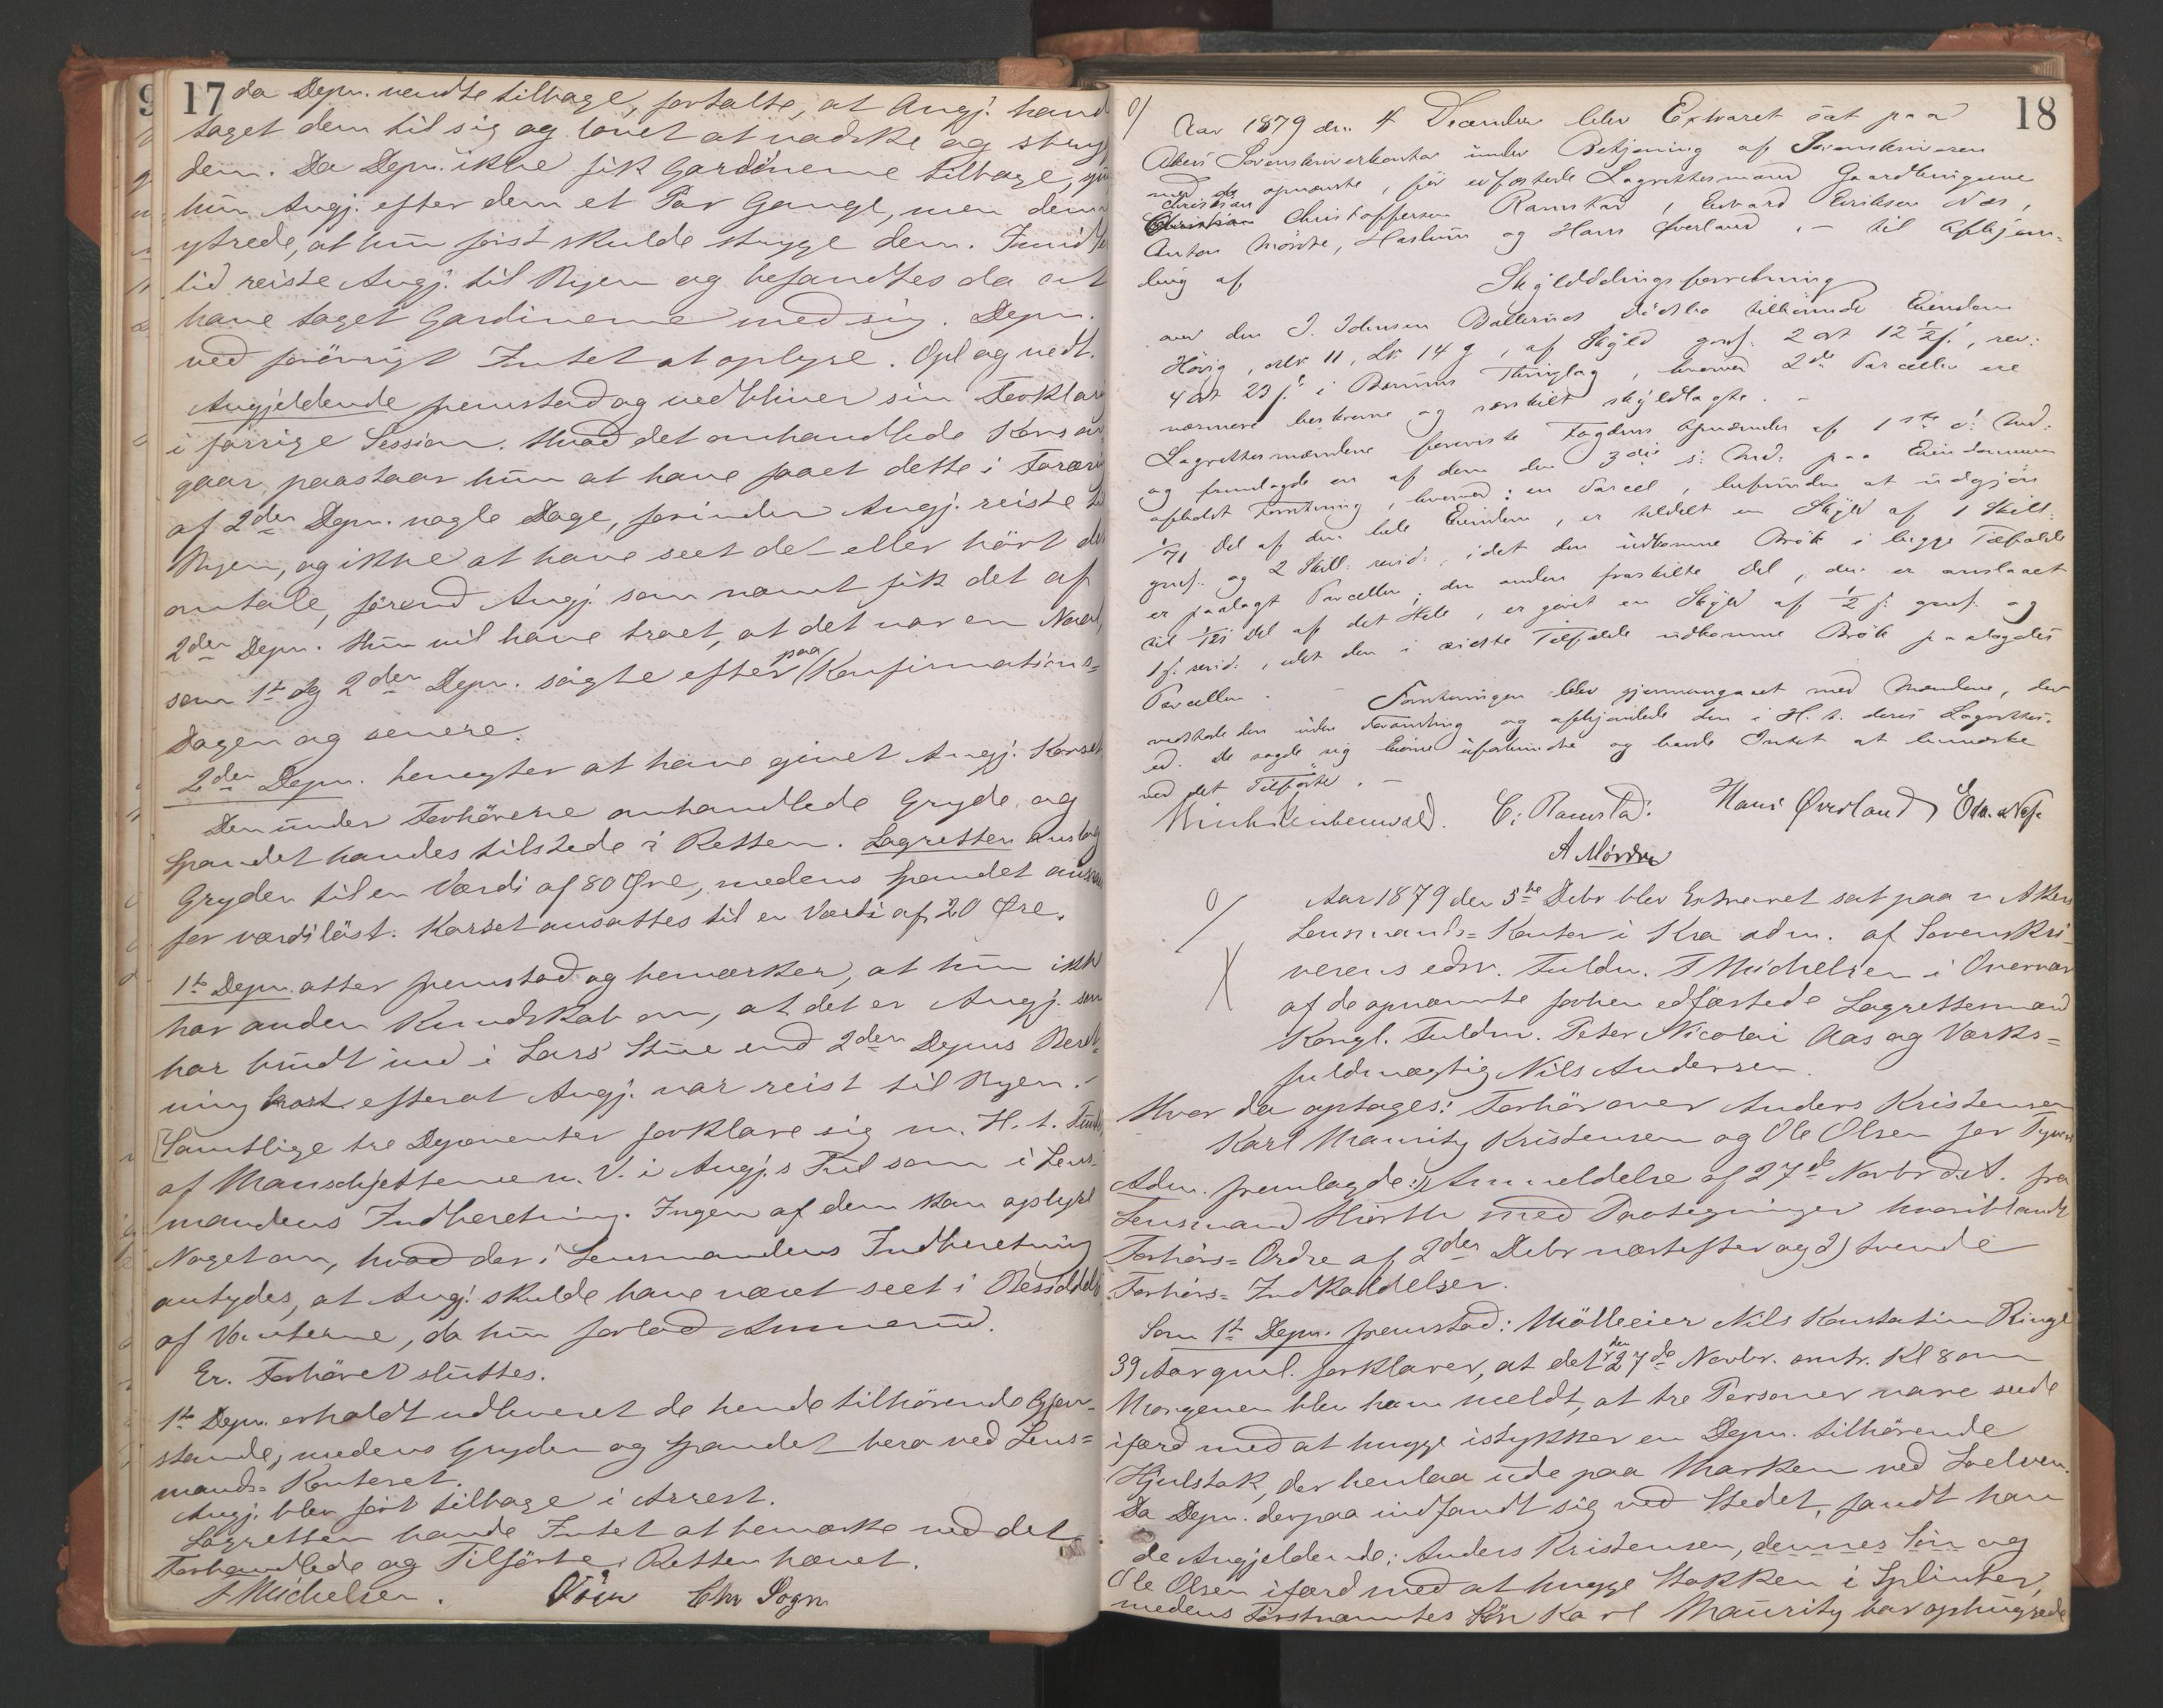 17
da Depn. vendte tilbage, fortalte, at Angj. havde
taget dem til sig og lovet at vadske og stryge
dem. Da Depn. ikke fik Gardinerne tilbage, gik
hun Angj. efter dem et Par Gange, men denne
ytrede, at hun först skulde stryge dem. Imid
tid reiste Angj. til Ryen og befandtes da at
have taget Gardinerne med sig. Depn.
ved forövrigt Intet at oplyse. Opl og vedt.
Angjeldende fremstod og vedbliver sin Forklar
i forrige Session. Hvad det omhandlede Kors an
gaar, paastaar hun at have faaet dette i Foræri
af 2den Depn. nogle Dage, forinden Angj. reiste til
Ryen, og ikke at have seet det eller hört det
omtale, förend Angj. som nævnt fik det af
2den Depn. Hun vil have troet, at det var en Naal,
som 1ste og 2den Depn. sögte efter paa Konfirmations=
Dagen og senere.
2den Depn. benegter at have givet Angj. Korset
Den under Forhörene omhandlede Gryde og
Spandet havdes tilstede i Retten. Lagretten anslog
Gryden til en Værdi af 80 Øre, medens Spandet ansaaes
for værdilöst. Korset ansattes til en Værdi af 20 Øre.
1ste Depn. atter fremstod og bemærker, at hun ikke
har anden Kundskab om, at det er Angj. som
har brudt ind i Lars' Stue end 2den Depns Beret-
ning herom efterat Angj. var reist til Ryen.
Samtlige tre Deponenter forklare sig m. H. t. Fund
af Manschjetterne m. V. i Angj.s Tül som i Lens-
mandens Indberetning. Ingen af dem kan oplyse
Noget om, hvad der i Lensmandens Indberetning
antydes, at Angj. skulde have været seet i Besiddelse
af Vanterne, da hun forlod Ammerud.
Er. Forhöret sluttes.
1ste Depn. erholdt udleveret de hende tilhörende Gjen-
stande, medens Gryden og Spandet bero ved Lens=
mands=Kontoret.
Angj. blev fört tilbage i Arrest.
Lagretten havde Intet at bemærke ved det
Forhandlede og Tilförte. Retten hævet.
T Michelsen. Chr Sogn
18
Aar 1879 den 4 December blev Extraret sat paa
Akers Sorenskriverkontor under Betjening af Sorenskriveren
med de opnævnte, för edfæstede Lagrettesmænd Gaardbrugerne
Christian
Christian Christoffersen Ramstad, Edvard Eriksen Næs,
Anton Mördre, Haslum og Hans Øverland, – til Afhjem-
ling af
Skylddelingsforretning
over den J. Johnsen Ballerud's Dödsbo tilhörende Eiendom
Hövig, Mtr 11, Lb 14 g, af Skyld gml. 2 ort 12 1/2 ſ., rev:
4 ort 23 ſ. i Bærums Thinglag, hvorved 2de Parceller ere
nærmere beskrevne og særskilt skyldlagte. –
Lagrettesmændene foreviste Fogdens Opnævnelse af 1ste d. Md:
og fremlagde en af dem den 3die s. Md: paa Eiendommen
afholdt Forretning, hvorved: en Parcel, befunden at udgjöre
1/71 Del af den hele Eiendom, er tildelt en Skyld af 1 Skill.
gml. og 2 Skill. revid., idet den udkomne Brök i begge Tilfælde
er paalagt Parcellen; den anden fraskilte Del, der er anslaaet
til 1/121 Del af det Hele, er givet en Skyld af 1/2 ſ. gml. og
1 ſ. revid., idet den i sidste Tilfælde udkomne Brök paalagdes
Parcellen. – Forretningen blev gjennemgaaet med Mændene, der
vedstode den uden Forandring og afhjemlede den i H. t. deres Lagrettes-
ed. De sagde sig Eierne uforbundne og havde Intet at bemærke
ved det Tilförte. –
C: Ramstad. Hans Øverland Edv. Næs.
A Mördre
Aar 1879 den 5te Debr blev Extraret sat paa Akers
Lensmands=Kontor i Kra adm. af Sorenskri-
verens edsv. Fuldm. T Michelsen i Overvær
af de opnævnte forhen edfæstede Lagrettesmænd
Kongl. Fuldm. Peter Nicolai Aas og Værks=
fuldmægtig Nils Andersen.
Hvor da optages: Forhör over Anders Kristensen
Karl Mauritz Kristensen og Ole Olsen for Tyveri
Adm. fremlagde: 1) Anmeldelse af 27de Novbr d. A. fra
Lensmand Hiorth med Paategninger hvoriblandt
Forhörs=Ordre af 2den Debr næstefter og 2) tvende
Forhörs=Indkaldelser.
Som 1ste Depn. fremstod: Mölleeier Nils Konstatin Ringe
39 Aar gml. forklarer, at det den 27de Novbr. omtr. Kl 8 om
Morgenen blev ham meldt, at tre Personer vare seede
ifærd med at hugge istykker en Depn. tilhörende
Hjulstok, der henlaa ude paa Marken ved Loelven.
Da Depn. derpaa indfandt sig ved Stedet, fandt han
de Angjeldende: Anders Kristensen, dennes Sön og
Ole Olsen ifærd med at hugge Stokken i Splinter,
medens Förstnævntes Sön Karl Mauritz bar ophuggede